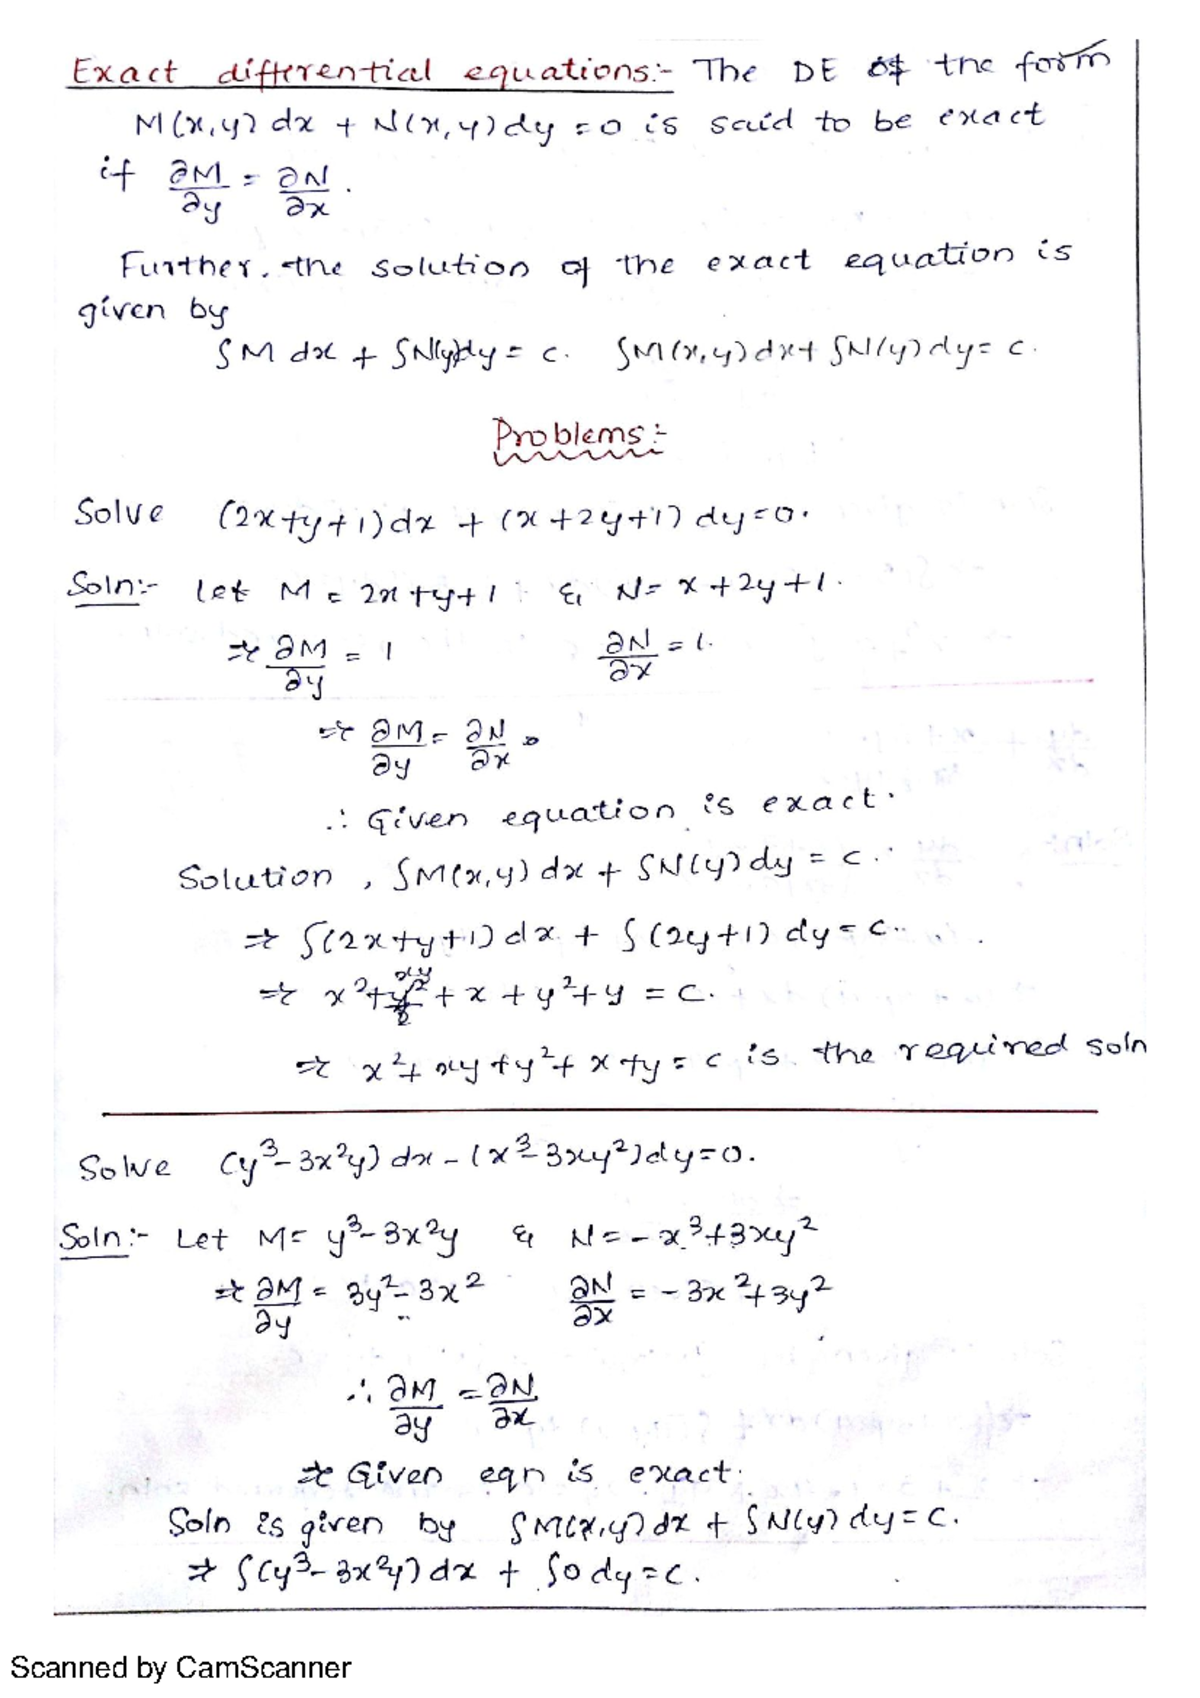 Exact differential equations:- The DE of the form
M(x,y) dx + N(x,y) dy = 0 is said to be exact
if ∂M/∂y = ∂N/∂x.
Further, the solution of the exact equation is
given by
∫M dx + ∫N(y)dy = c. ∫M(x,y)dx + ∫N(y)dy = c.
Problems:-
Solve (2x+y+1)dx + (x+2y+1) dy=0.
Soln:- let M = 2x+y+1 & N = x+2y+1.
⇒ ∂M/∂y = 1 ∂N/∂x = 1.
⇒ ∂M/∂y = ∂N/∂x.
∴ Given equation is exact.
Solution, ∫M(x,y) dx + ∫N(y) dy = c.
⇒ ∫(2x+y+1) dx + ∫(2y+1) dy = c.
⇒ x²+xy + x + y²+y = c.
⇒ x²+xy+y²+x+y = c is the required soln
Solve (y³-3x²y) dx - (x³-3xy²)dy=0.
Soln:- Let M= y³-3x²y & N = -x³+3xy²
⇒ ∂M/∂y = 3y²-3x² ∂N/∂x = -3x²+3y²
∴ ∂M/∂y = ∂N/∂x
⇒ Given eqn is exact.
Soln is given by ∫M(x,y) dx + ∫N(y) dy = c.
⇒ ∫(y³-3x²y) dx + ∫0 dy = c.
Scanned by CamScanner